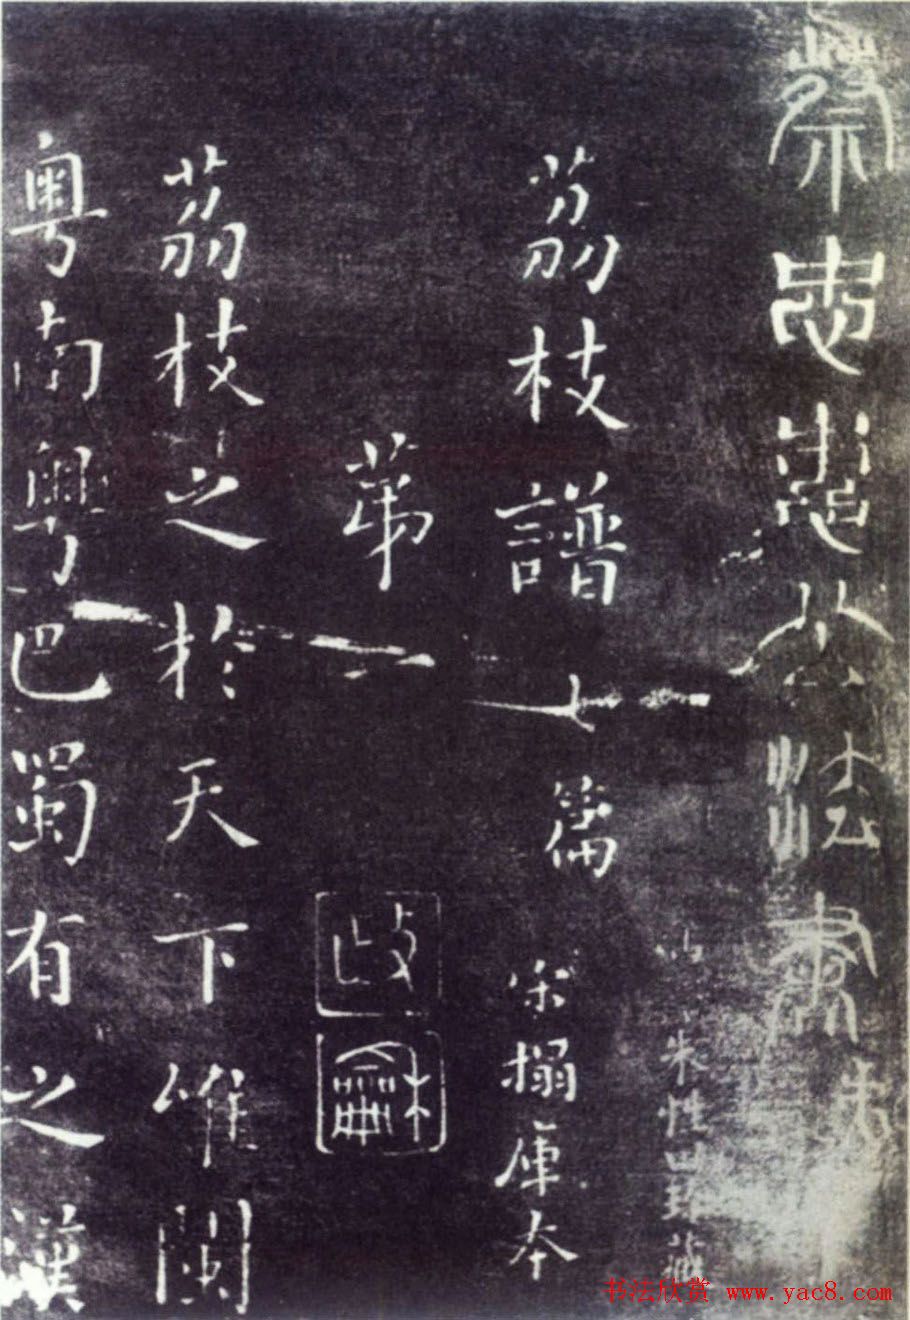 蔡忠惠公法書
朱性藏
荔枝譜七篇 宋搨庫本
苐一
龢
荔枝之於天下唯閩
粵南粵巴蜀有之漢
书法欣赏 www.yac8.com